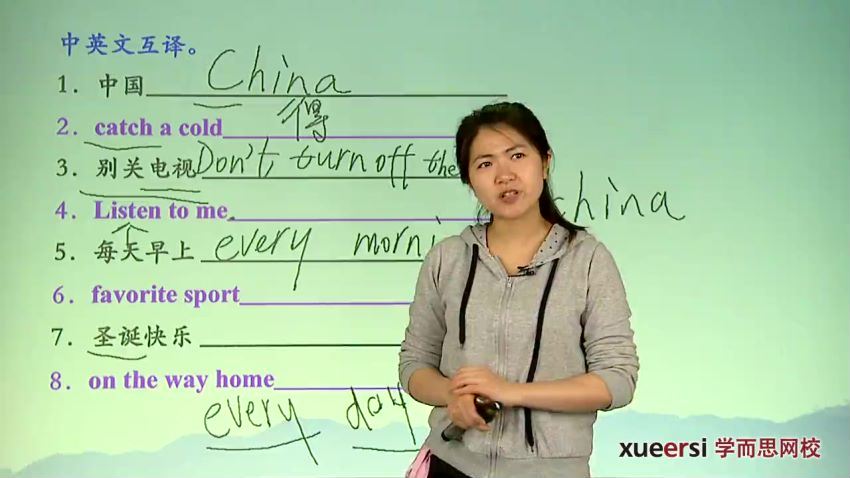 中英文互译。
1. 中国 China
得
2. catch a cold
3. 别关电视 Don't turn off the
4. Listen to me.
china
5. 每天早上 every morni
6. favorite sport
7. 圣诞快乐
8. on the way home
every day
xueersi 学而思网校